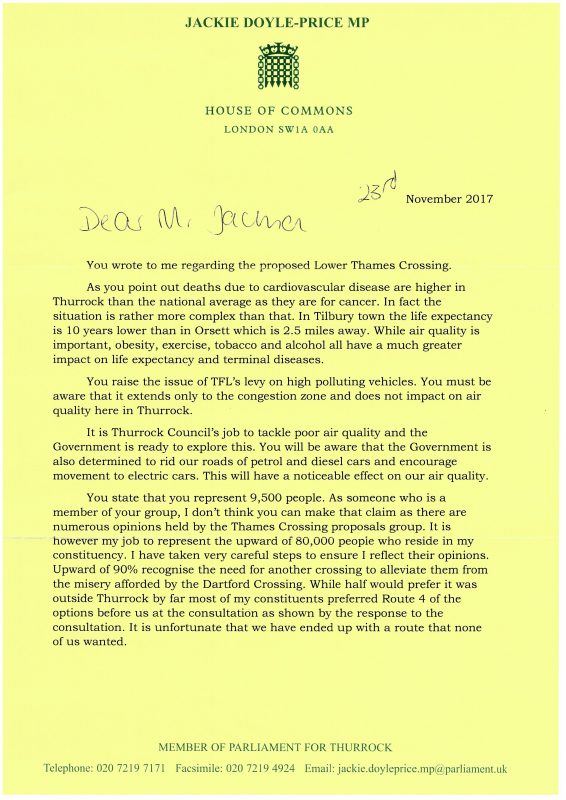 JACKIE DOYLE-PRICE MP
HOUSE OF COMMONS
LONDON SW1A 0AA
23rd November 2017
Dear Mr Jackson
You wrote to me regarding the proposed Lower Thames Crossing.
As you point out deaths due to cardiovascular disease are higher in
Thurrock than the national average as they are for cancer. In fact the
situation is rather more complex than that. In Tilbury town the life expectancy
is 10 years lower than in Orsett which is 2.5 miles away. While air quality is
important, obesity, exercise, tobacco and alcohol all have a much greater
impact on life expectancy and terminal diseases.
You raise the issue of TFL's levy on high polluting vehicles. You must be
aware that it extends only to the congestion zone and does not impact on air
quality here in Thurrock.
It is Thurrock Council's job to tackle poor air quality and the
Government is ready to explore this. You will be aware that the Government is
also determined to rid our roads of petrol and diesel cars and encourage
movement to electric cars. This will have a noticeable effect on our air quality.
You state that you represent 9,500 people. As someone who is a
member of your group, I don't think you can make that claim as there are
numerous opinions held by the Thames Crossing proposals group. It is
however my job to represent the upward of 80,000 people who reside in my
constituency. I have taken very careful steps to ensure I reflect their opinions.
Upward of 90% recognise the need for another crossing to alleviate them from
the misery afforded by the Dartford Crossing. While half would prefer it was
outside Thurrock by far most of my constituents preferred Route 4 of the
options before us at the consultation as shown by the response to the
consultation. It is unfortunate that we have ended up with a route that none
of us wanted.
MEMBER OF PARLIAMENT FOR THURROCK
Telephone: 020 7219 7171 Facsimile: 020 7219 4924 Email: jackie.doyleprice.mp@parliament.uk